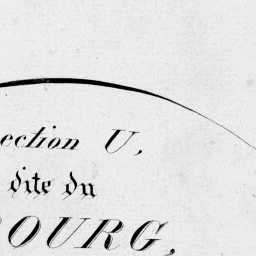 ection U,
dite du
BOURG,